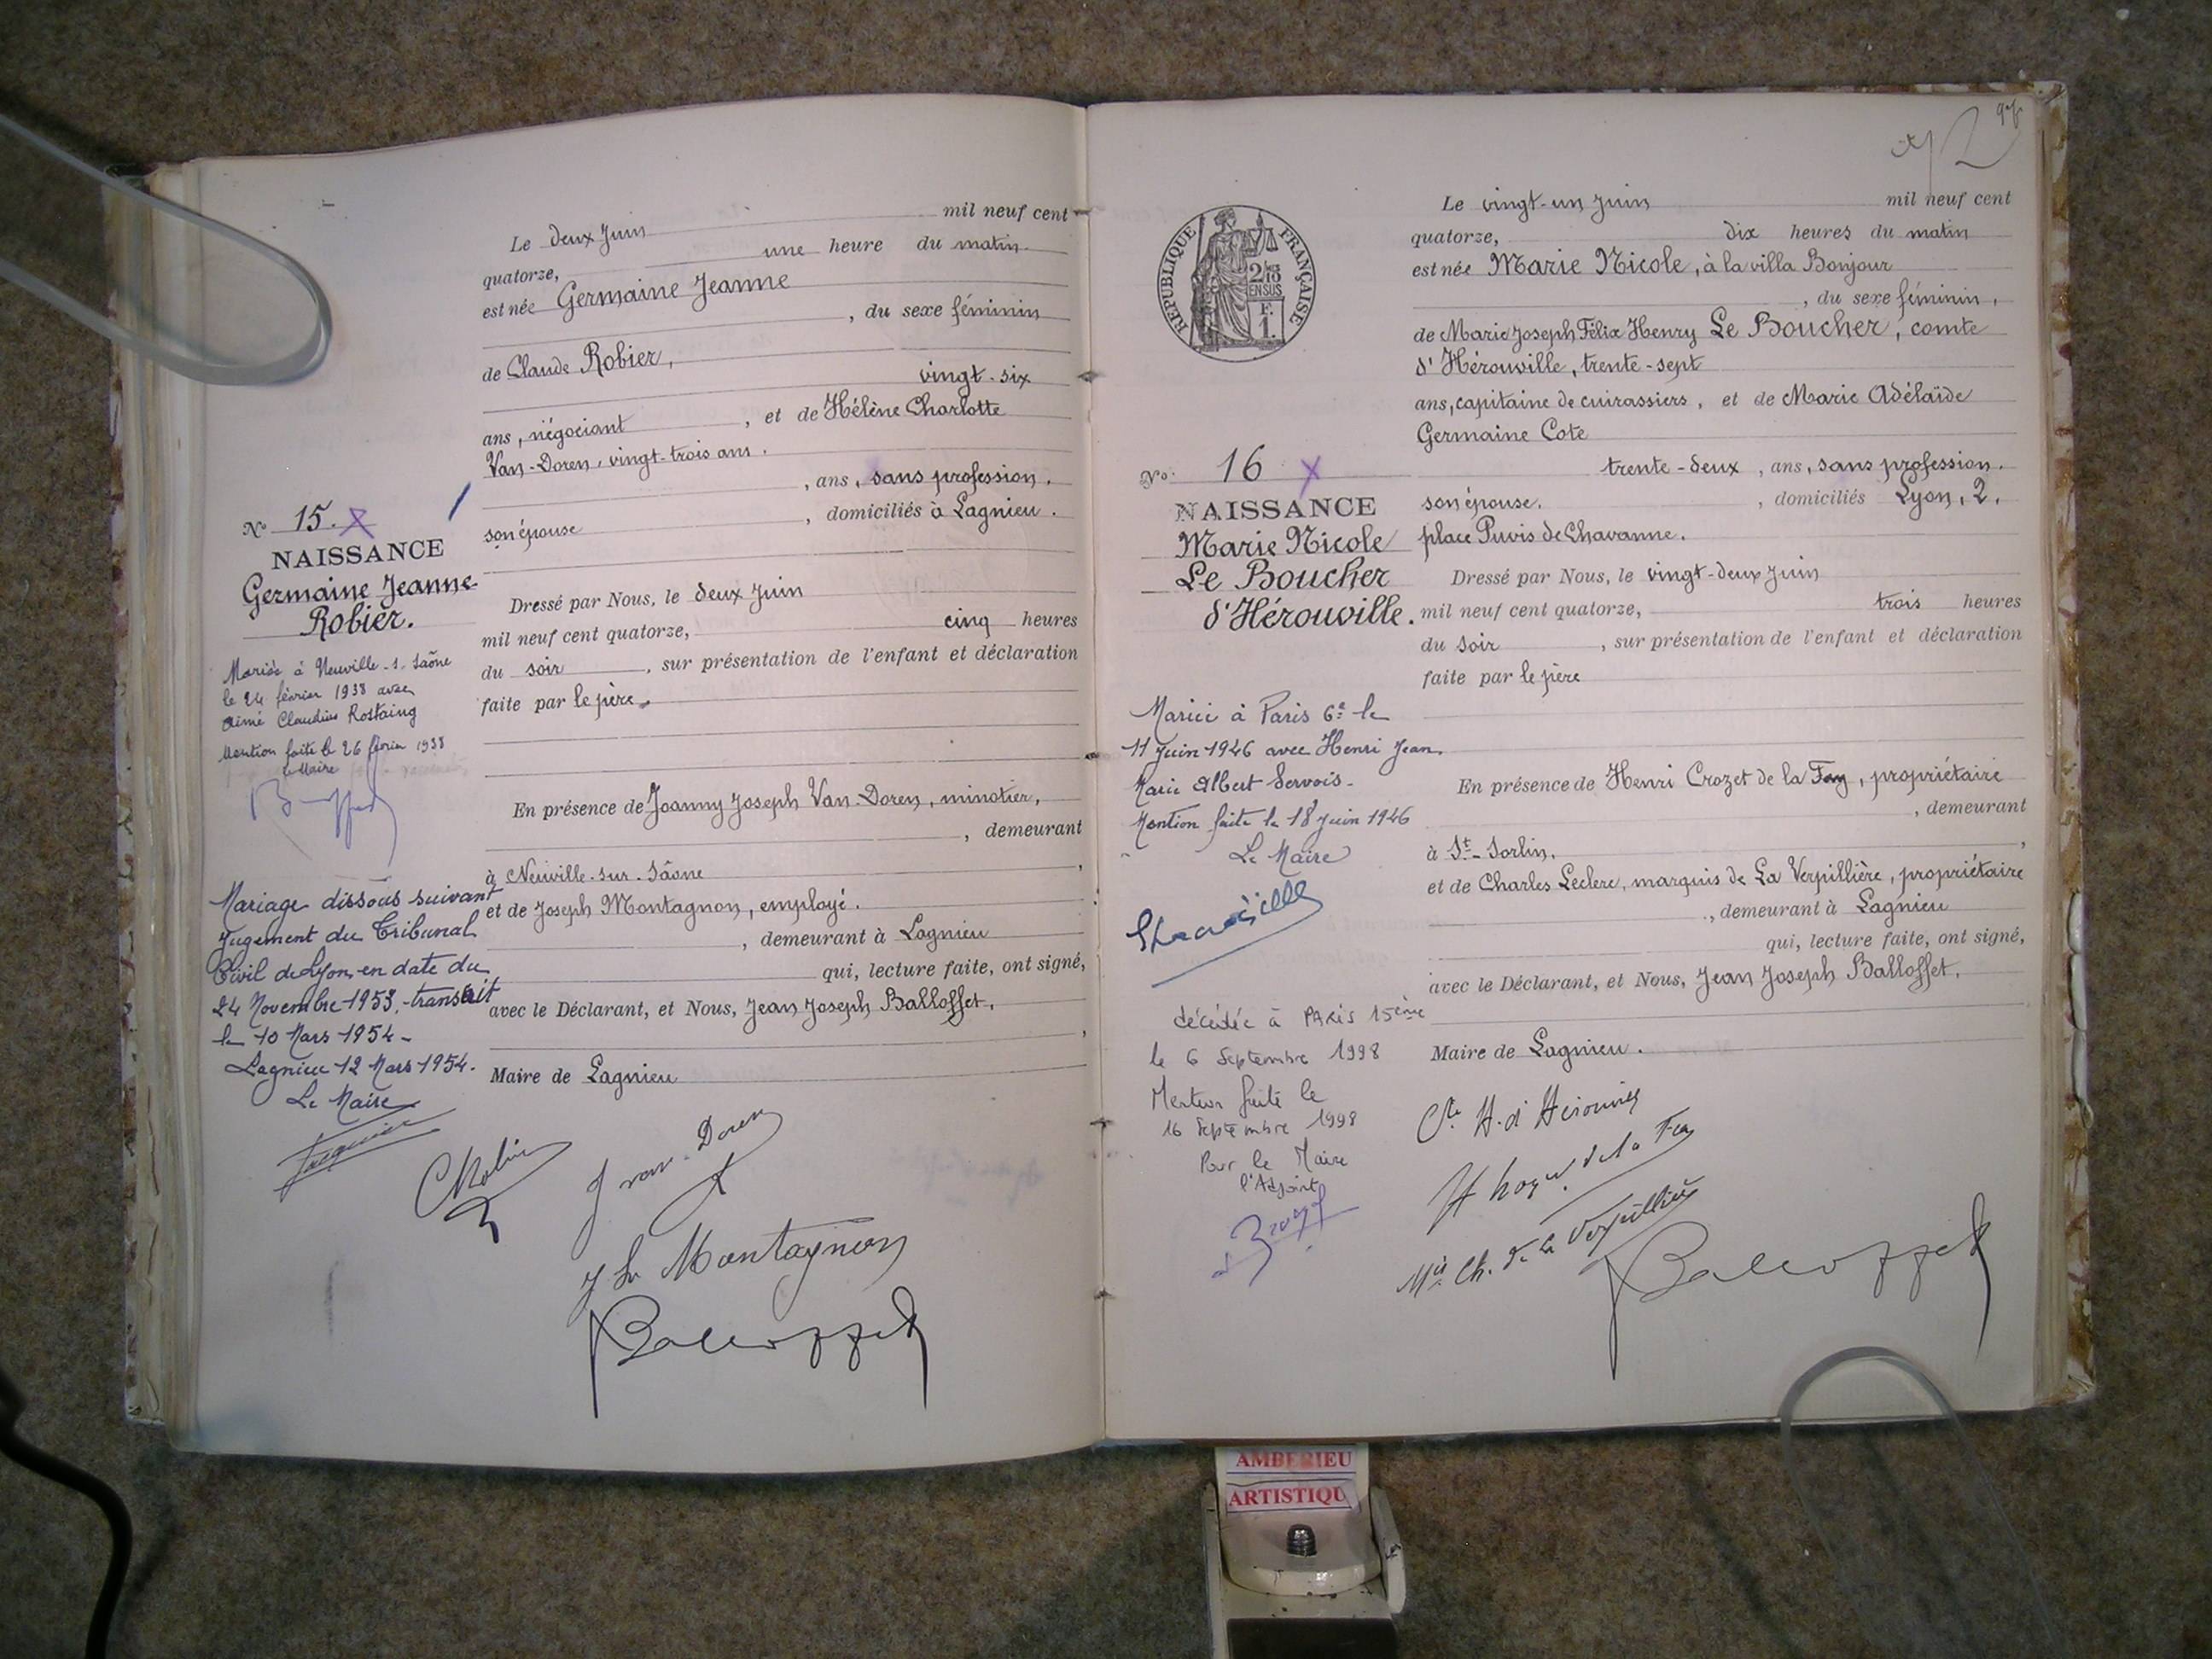 Le deux Juin mil neuf cent
quatorze, une heure du matin
est née Germaine Jeanne
, du sexe féminin
de Claude Robier,
vingt-six
ans, négociant, et de Hélène Charlotte
Van-Doren, vingt-trois ans.
, ans, sans profession.
son épouse, domiciliés à Lagnieu.
N° 15.
NAISSANCE
Germaine Jeanne
Robier.
Dressé par Nous, le deux Juin
mil neuf cent quatorze, cinq heures
du soir, sur présentation de l'enfant et déclaration
faite par le père.
Mariée à Neuville-s-Saône
le 24 février 1938 avec
Aimé Claudius Rostaing
Mention faite le 26 février 1938
Le Maire
En présence de Joanny Joseph Van-Doren, minotier,
, demeurant
à Neuville-sur-Saône,
et de Joseph Montagnon, employé.
, demeurant à Lagnieu
qui, lecture faite, ont signé,
avec le Déclarant, et Nous, Jean Joseph Balloffet,
Maire de Lagnieu
Mariage dissous suivant
Jugement du Tribunal
Civil de Lyon en date du
24 Novembre 1953, transcrit
le 10 Mars 1954-
Lagnieu 12 Mars 1954.
Le Maire
CRobier
J van-Doren
J Montagnon
Balloffet
Le vingt-un Juin mil neuf cent
quatorze, dix heures du matin
est née Marie Nicole, à la villa Bonjour
, du sexe féminin,
de Marie Joseph Félix Henry Le Boucher, comte
d'Hérouville, trente-sept
ans, capitaine de cuirassiers, et de Marie Adélaïde
Germaine Cote
trente-deux, ans, sans profession.
son épouse., domiciliés Lyon, 2,
place Puvis de Chavanne.
RÉPUBLIQUE FRANÇAISE
2/10 EN SUS
F.
1.
N° 16
NAISSANCE
Marie Nicole
Le Boucher
d'Hérouville.
Dressé par Nous, le vingt-deux Juin
mil neuf cent quatorze, trois heures
du soir, sur présentation de l'enfant et déclaration
faite par le père
Mariée à Paris 6e le
11 Juin 1946 avec Henri Jean
Marie Albert Servois-
Mention faite le 18 Juin 1946
Le Maire
En présence de Henri Crozet de la Fay, propriétaire
, demeurant
à St-Sorlin,
et de Charles Leclerc, marquis de La Verpillière, propriétaire
, demeurant à Lagnieu
qui, lecture faite, ont signé,
avec le Déclarant, et Nous, Jean Joseph Balloffet,
Maire de Lagnieu.
décédée à PARIS 15ème
le 6 Septembre 1998
Mention faite le
16 Septembre 1998
Pour le Maire
l'Adjoint
Cte H. d'Hérouville
H Crozet de la Fay
Mis Ch. de la Verpillière
Balloffet
AMBERIEU
ARTISTIQU